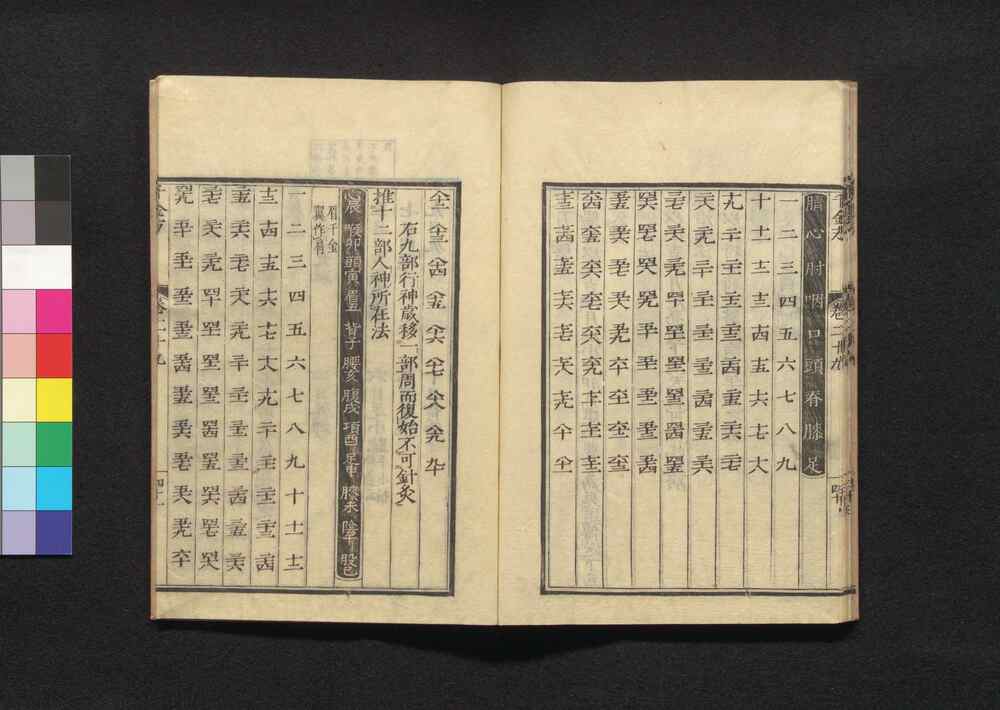 臍心肘咽口頭脊膝足
一二三四五六七八九
十十一十二十三十四十五十六十七十八
十九二十二十一二十二二十三二十四二十五二十六二十七
二十八二十九三十三十一三十二三十三三十四三十五三十六
三十七三十八三十九四十四十一四十二四十三四十四四十五
四十六四十七四十八四十九五十五十一五十二五十三五十四
五十五五十六五十七五十八五十九六十六十一六十二六十三
六十四六十五六十六六十七六十八六十九七十七十一七十二
七十三七十四七十五七十六七十七七十八七十九八十八十一
八十二八十三八十四八十五八十六八十七八十八八十九九十
右九部行神歲移一部周而復始不可針灸
推十二部人神所在法
心辰喉卯頭寅眉丑背子腰亥腹戌項酉足申膝未陰午股巳
眉千金
翼作肩
一二三四五六七八九十十一十二
十三十四十五十六十七十八十九二十二十一二十二二十三二十四
二十五二十六二十七二十八二十九三十三十一三十二三十三三十四三十五三十六
三十七三十八三十九四十四十一四十二四十三四十四四十五四十六四十七四十八
四十九五十五十一五十二五十三五十四五十五五十六五十七五十八五十九六十
千金方
卷二十九